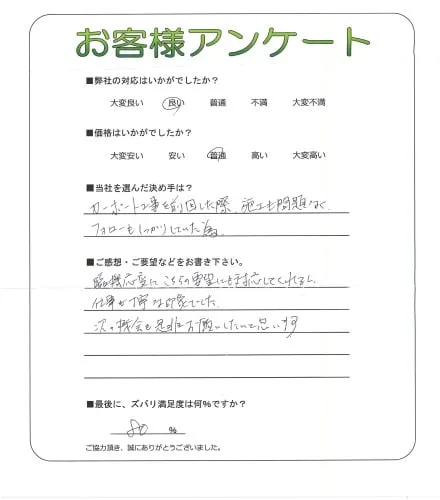 お客様アンケート
■弊社の対応はいかがでしたか?
大変良い 良い 普通 不満 大変不満
■価格はいかがでしたか?
大変安い 安い 普通 高い 大変高い
■当社を選んだ決め手は?
カーポート工事を前回した際、施工も問題なく、
フォローもしっかりしていた為。
■ご感想・ご要望などをお書き下さい。
臨機応変にこちらの要望にも対応してくれるし、
仕事が丁寧な印象でした。
次の機会も是非お願いしたいと思います
■最後に、ズバリ満足度は何%ですか?
80 %
ご協力頂き、誠にありがとうございました。